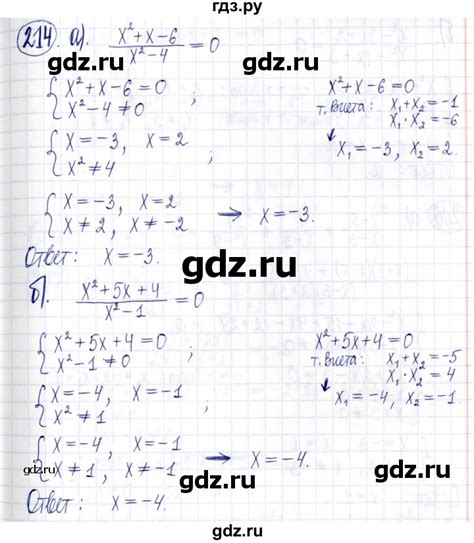 гдз.ру
214. а). (x²+x-6)/(x²-4) = 0
{ x²+x-6=0
x²-4≠0 ;
x²+x-6=0
т. Виета: x₁+x₂=-1
x₁·x₂=-6
↓
x₁=-3, x₂=2.
{ x=-3, x=2
x²≠4 ;
{ x=-3, x=2
x≠2, x≠-2 → x=-3.
gdz.ru
Ответ: x=-3.
б). (x²+5x+4)/(x²-1) = 0
gdz.ru
gdz.ru
{ x²+5x+4=0
x²-1≠0 ;
x²+5x+4=0
т. Виета: x₁+x₂=-5
x₁·x₂=4
↓
x₁=-4, x₂=-1.
{ x=-4, x=-1
x²≠1 ;
{ x=-4, x=-1
x≠1, x≠-1 → x=-4.
gdz.ru
gdz.ru
gdz.ru
Ответ: x=-4.
gdz.ru